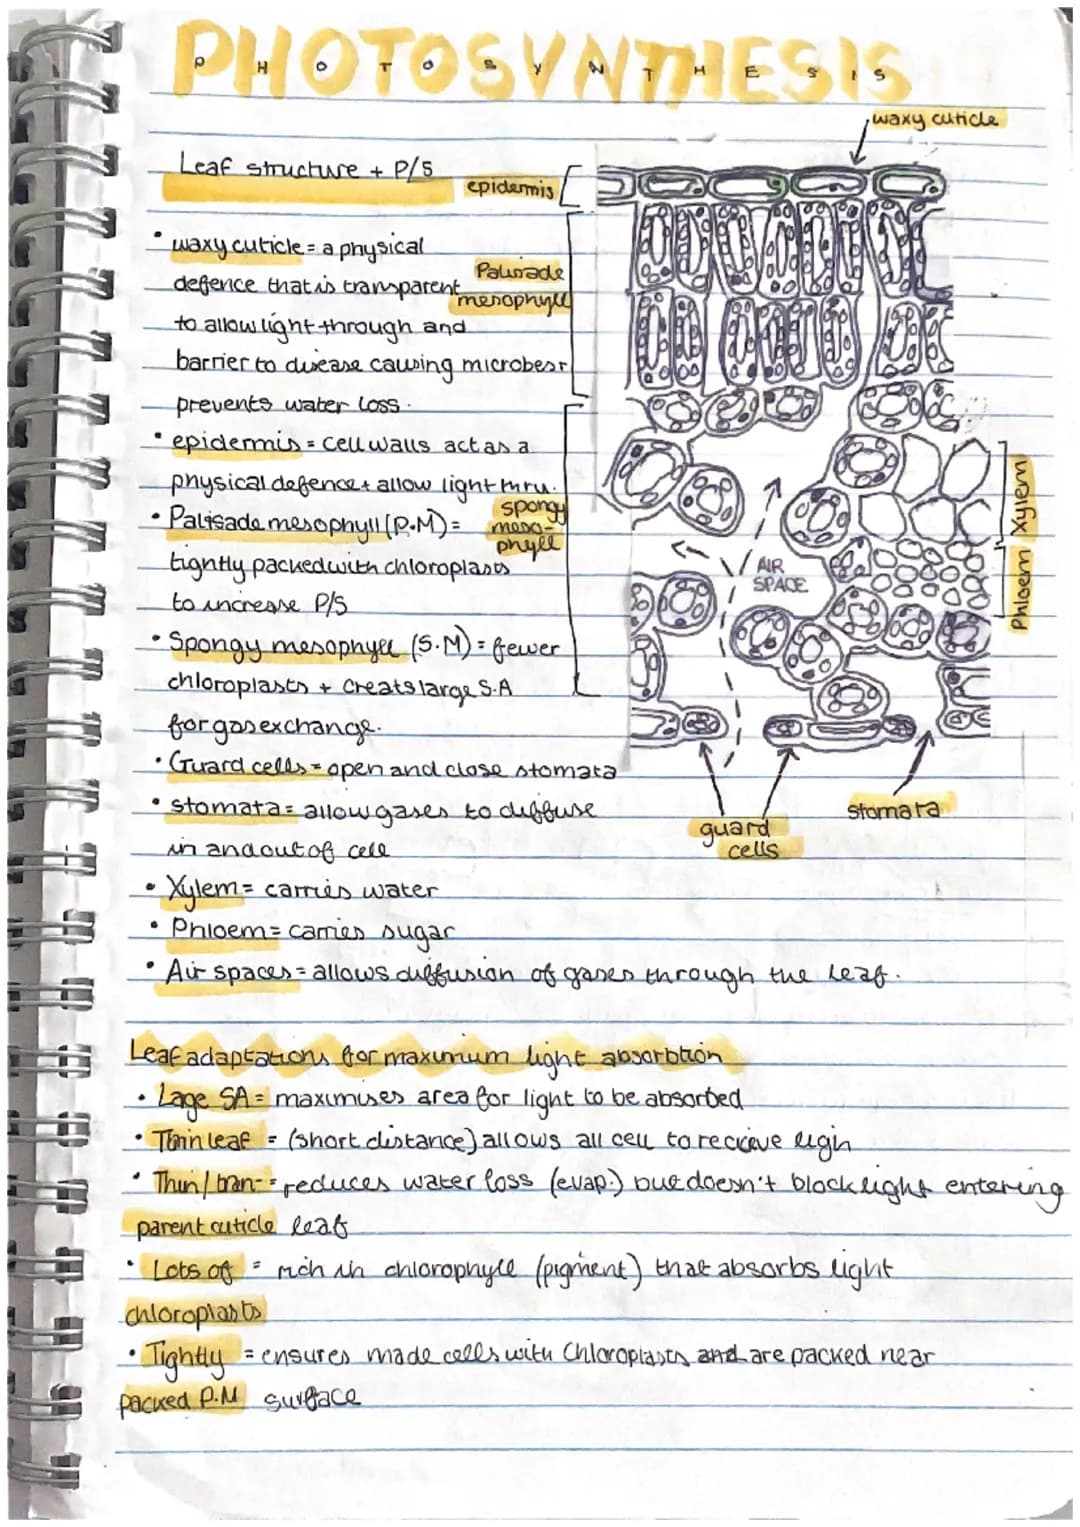 PHOTOSYNTHESIS
P H O T O S Y N T H E S I S
waxy cuticle
Leaf structure + P/S
epidermis
• waxy cuticle = a physical
defence that is transparent
Palisade
mesophyll
to allow light through and
barrier to disease causing microbes +
prevents water loss.
• epidermis = cell walls act as a
physical defence + allow light thru.
• Palisade mesophyll (P.M) =
spongy
meso-
phyll
tightly packed with chloroplasts
to increase P/S
• Spongy mesophyll (S.M) = fewer
chloroplasts + creats large S.A
for gas exchange.
AIR
SPACE
Xylem
Phloem
• Guard cells = open and close stomata
• stomata = allow gases to diffuse
in and out of cell
guard
cells
stomata
• Xylem = carries water
• Phloem = carries sugar
• Air spaces = allows diffusion of gases through the leaf.
Leaf adaptations for maximum light absorbtion
• Lage SA = maximises area for light to be absorbed
• Thin leaf = (short distance) allows all cell to recieve ligh
• Thin/tran- = reduces water loss (evap.) but doesn't block light entering
parent cuticle leaf
• Lots of = rich in chlorophyll (pigment) that absorbs light
chloroplasts
• Tightly = ensures made cells with Chloroplasts and are packed near
packed P.M surface